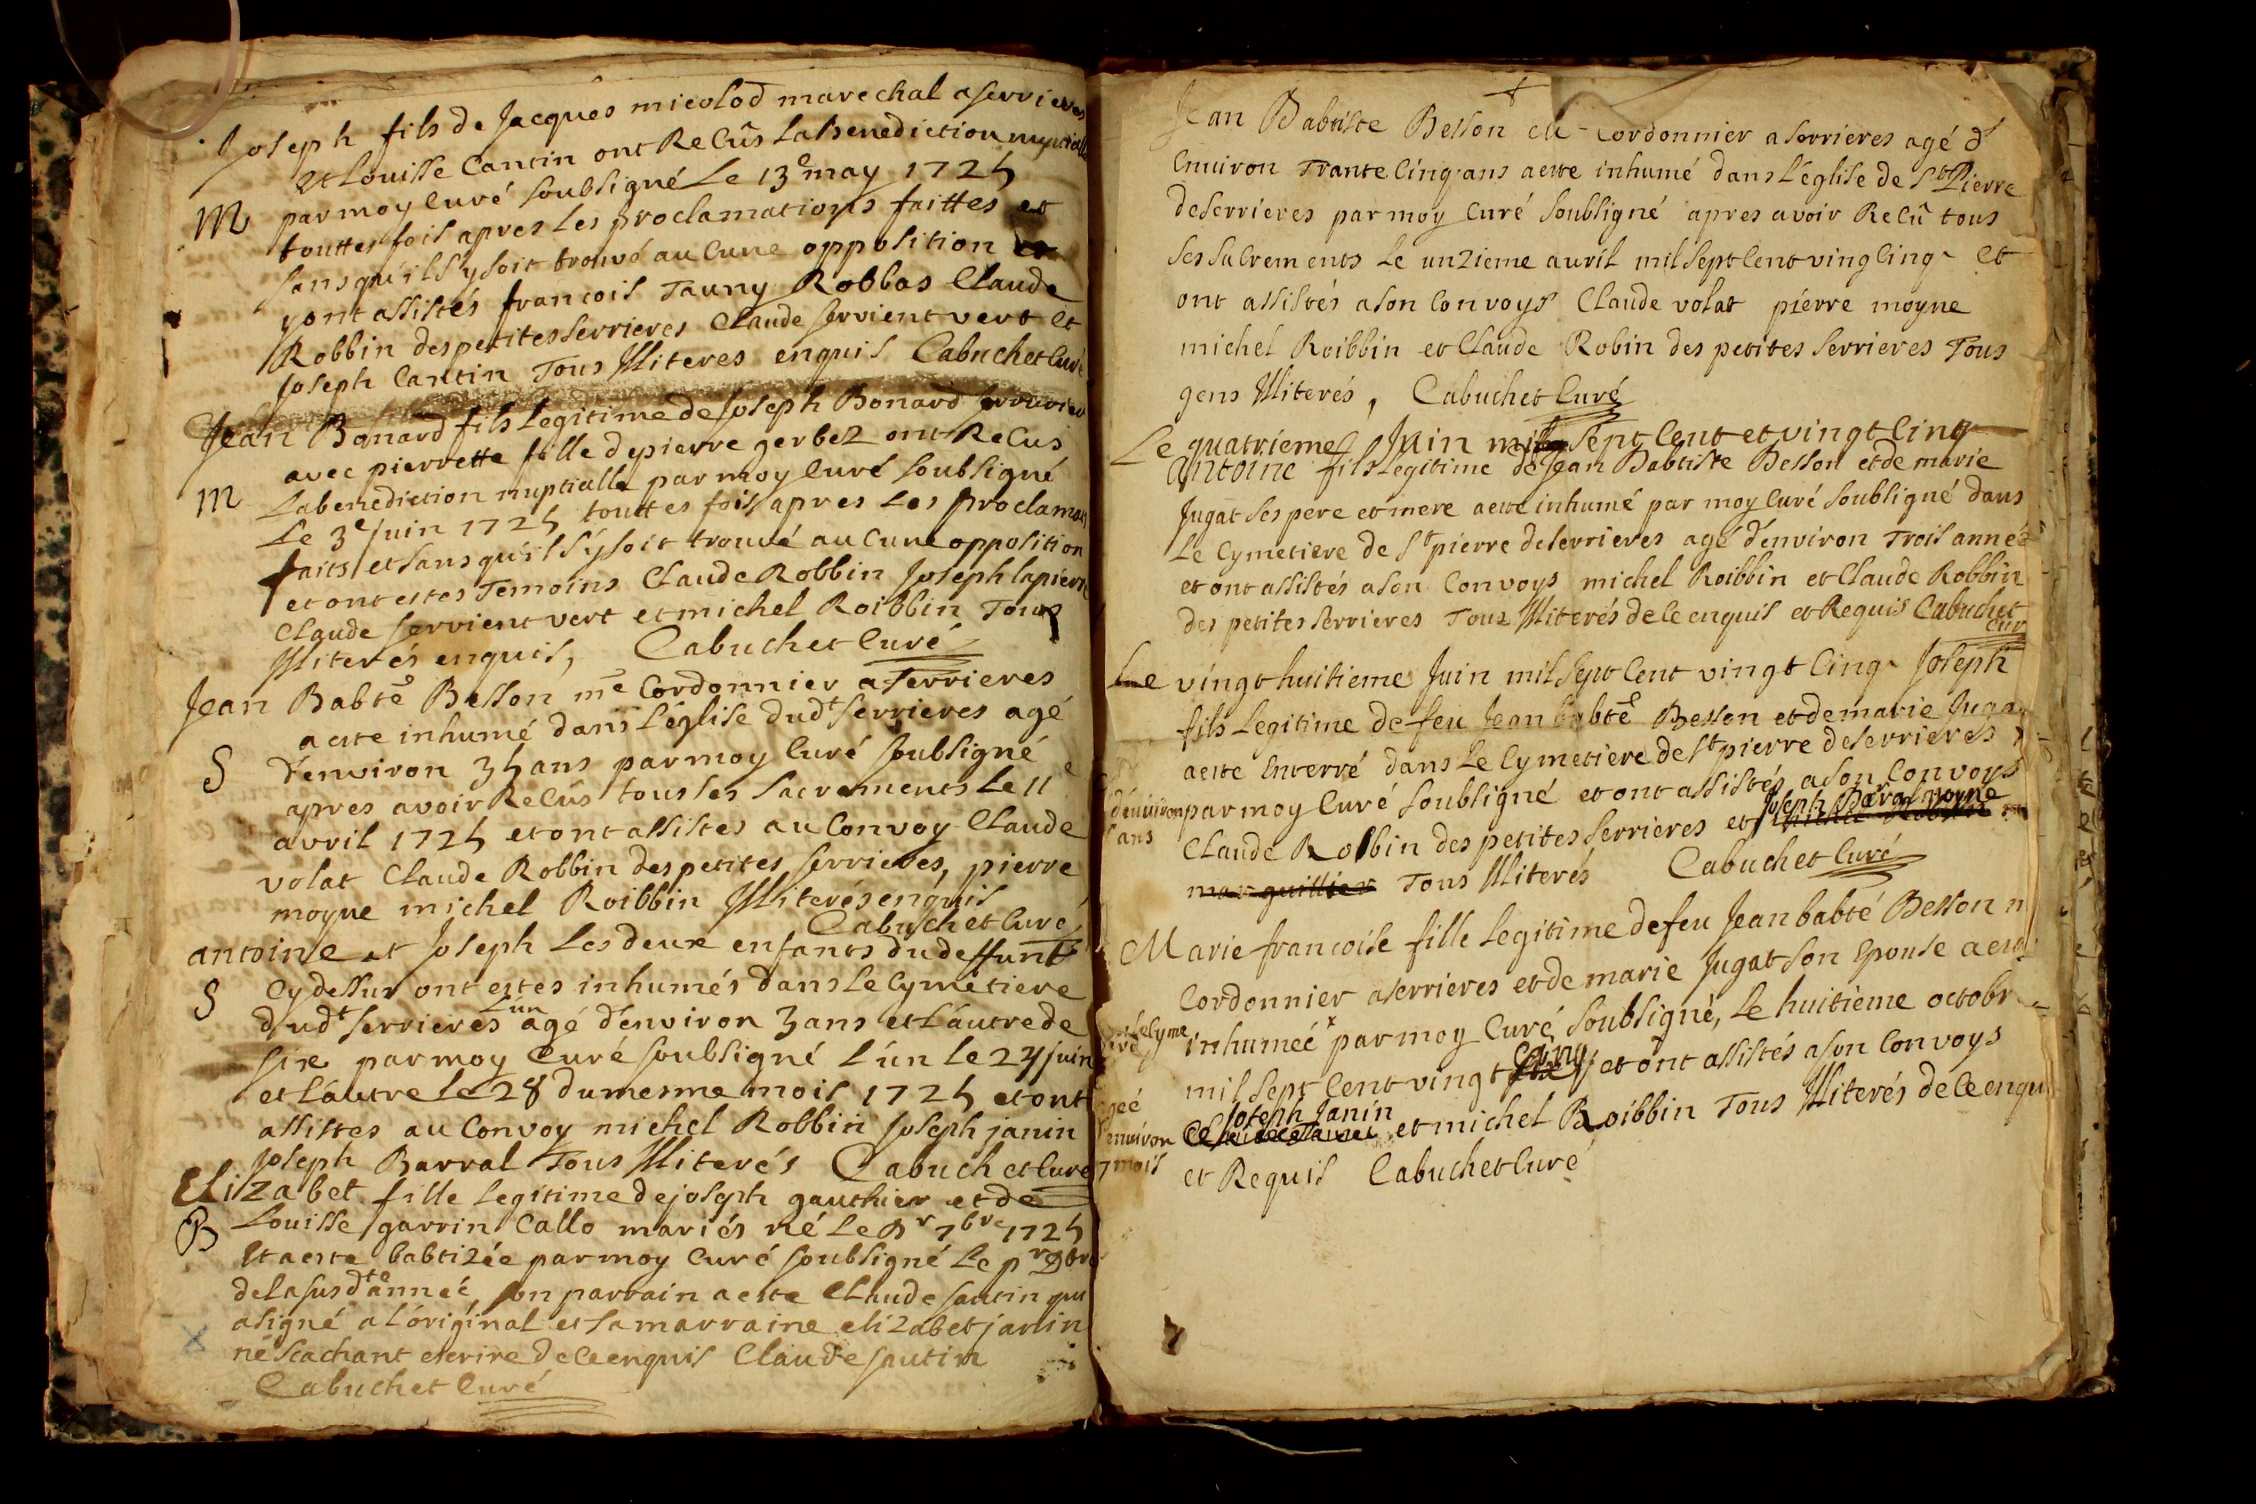 Joseph fils de Jacques micolod marechal a serrieres
et Louisse Cantin ont Recûs La benediction nuptialle
M par moy Curé soubsigné Le 13e may 1725
touttes fois apres Les proclamations faittes et
sans qu'il s'y soit trouvé au Cune opposition
y ont assistes francois Tauny Robbas Claude
Robbin des petites serrieres Claude servient vert et
Joseph Cantin Tous Illiteres enquis Cabuchet Curé
Jean Bonard fils Legitime de Joseph Bonard
avec pierrette fille de pierre gerbez ont Recus
M La benediction nuptialle par moy Curé soubsigné
Le 3e Juin 1725 touttes fois apres Les proclamaõns
faits et sans qu'il s'y soit trouvé au Cune opposition
et ont estes Temoins Claude Robbin Joseph lapierre
Claude servient vert et michel Roibbin Tous
Illiterés enquis, Cabuchet Curé
Jean Babte Besson me Cordonnier a serrieres
a este inhumé dans L'église dudt serrieres agé
S d'environ 35 ans par moy Curé soubsigné
apres avoir Recûs tous les sacrements Le 11e
avril 1725 et ont assistes au Convoy Claude
volat Claude Robbin des petites serrieres, pierre
moyne michel Roibbin Illiterés enquis
Cabuchet Curé
antoine et Joseph Les deux enfants du deffunt
S Cy dessus ont estes inhumés dans Le Cymetiere
dudt serrieres L'un agé d'environ 3 ans et L'autre de
six par moy Curé soubsigné L'un le 24 juin
et L'autre le 28 du mesme mois 1725 et ont
assistes au Convoy michel Robbin Joseph janin
Joseph Barral Tous Illiterés Cabuchet Curé
Elizabet fille Legitime de joseph gauthier et de
B Louisse garrin Callo mariés né Le Pr 7bre 1725
Et a este babtizée par moy Curé soubsigné Le pr
de La susdte année, son parrain a este Claude sautin qui
a signé a L'original et sa marraine elizabet janin
ne scachant escrire de ce enquis Claude sautin
Cabuchet Curé
Jean Babtiste Besson Cordonnier a serrieres agé d'
Environ Trante Cinq ans a este inhumé dans L'église de St Pierre
de serrieres par moy Curé soubsigné apres avoir Recû tous
ses sacrements Le unzieme auril mil sept Cent ving Cinq et
ont assistés a son Convoys Claude volat pierre moyne
michel Roibbin et Claude Robin des petites serrieres Tous
gens Illiterés, Cabuchet Curé
Le quatrieme Juin mil sept Cent et vingt Cinq
Antoine fils Legitime de Jean Babtiste Besson et de marie
Jugat ses pere et mere a este inhumé par moy Curé soubsigné dans
Le Cymetiere de St pierre de serrieres agé d'environ Trois années
et ont assistés a son Convoys michel Roibbin et Claude Robbin
des petites serrieres Tous Illiterés de Ce enquis et Requis Cabuchet
Cur
Le vingt huitieme Juin mil sept Cent vingt Cinq Joseph
fils Legitime de feu Jean babte Besson et de marie Jugat
a este Enterré dans Le Cymetiere de St pierre de serrieres
d'environ par moy Curé soubsigné et ont assistés a son Convoys
ans Claude Robbin des petites serrieres et Joseph Baral moyne
marguillier Tous Illiterés Cabuchet Curé
Marie francoise fille Legitime de feu Jean babte Besson m
Cordonnier a serrieres et de marie Jugat son Epouse a este
inhumée x par moy Curé soubsigné, Le huitieme octobr
mil sept Cent vingt Cinq et ont assistés a son Convoys
Joseph Janin et michel Roibbin Tous Illiterés de Ce enqu
et Requis Cabuchet Curé
le Cyme
ageé
d'environ
7 mois